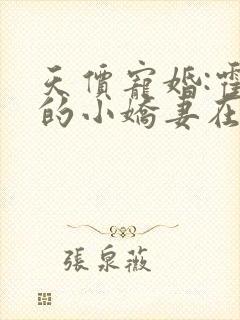 天價寵婚:霍
的小嬌妻在
張泉薇